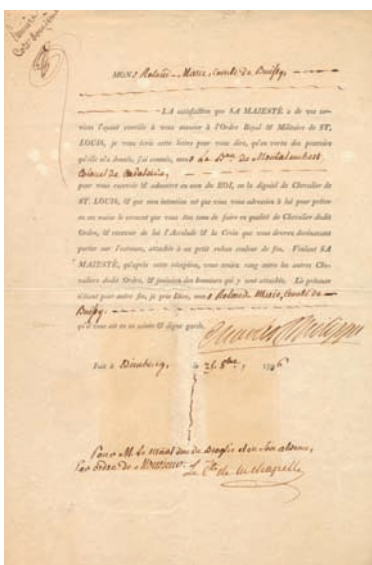 MONS Roland-Marie, Comte de Buissy,
LA satisfaction que SA MAJESTÉ a de vos ser-
vices l'ayant conviée à vous associer à l'Ordre Royal & Militaire de ST.
LOUIS, je vous écris cette lettre pour vous dire, qu'en vertu des pouvoirs
qu'elle m'a donnés, j'ai commis, mons Le Bon de Montalembert
Colonel de Cavalerie,
pour vous recevoir & admettre au nom du ROI, en la dignité de Chevalier de
ST. LOUIS, & que mon intention est que vous vous adressiez à lui pour prêter
en ses mains le serment que vous êtes tenu de faire en qualité de Chevalier dudit
Ordre, & recevoir de lui l'Accolade & la Croix que vous devrez dorénavant
porter sur l'estomac, attachée à un petit ruban couleur de feu. Voulant SA
MAJESTÉ, qu'après cette réception, vous teniez rang entre les autres Che-
valiers dudit Ordre, & jouissiez des honneurs qui y sont attachés. La présente
n'étant pour autre fin, je prie Dieu, mons Roland Marie, Comte de
Buissy
qu'il vous ait en sa sainte & digne garde.
Charles Philippe
Fait à le 26 8bre, 1796
Pour M. le mal duc de Broglie et en son absence,
Par ordre de Monsieur. Le Cte de la Chapelle